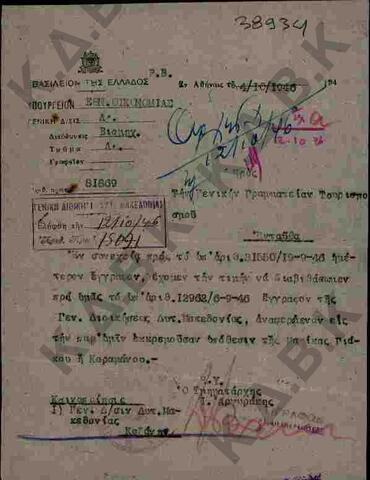 38934
P.B.
ΒΑΣΙΛΕΙΟΝ ΤΗΣ ΕΛΛΑΔΟΣ
Ἐν Ἀθήναις τῇ 4/10/1946 194
ΥΠΟΥΡΓΕΙΟΝ ΕΘΝ.ΟΙΚΟΝΟΜΙΑΣ
ΓΕΝΙΚΗ Δ/ΣΙΣ Α.
Διεύθυνσις Βιομηχ.
Τμῆμα Α.
Γραφεῖον
12/10/46
12-10-46
Πρὸς
Ἀριθ. πρωτ. 81669
Τὴν Γενικὴν Γραμματείαν Τουρισμοῦ
ΓΕΝΙΚΗ ΔΙΟΙΚΗΣΙΣ ΔΥΤ. ΜΑΚΕΔΟΝΙΑΣ
Ἐλήφθη τῇ 12/10/46
Ἀριθ. Πρωτ. 15041
Ἐνταῦθα
Ἐν συνεχείᾳ πρὸς τὸ ὑπ' ἀριθ. 81550/19-9-46 ἡμέτερον ἔγγραφον, ἔχομεν τὴν τιμὴν νὰ διαβιβάσωμεν
πρὸς ὑμᾶς τὸ ὑπ' ἀριθ. 12962/6-9-46 ἔγγραφον τῆς
Γεν. Διοικήσεως Δυτ. Μακεδονίας, ἀναφερόμενον εἰς
τὴν παρ' ὑμῖν ἐκκρεμοῦσαν ὑπόθεσιν τῆς
ἢ Καραμάνου.-
Ε.Υ.
Ὁ Τμηματάρχης
Ι. Ἀργυράκης
Κοινοποίησις
1) Γεν. Δ/σιν Δυτ. Μακεδονίας
Κοζάνην
Κ.Α.Β.Κ